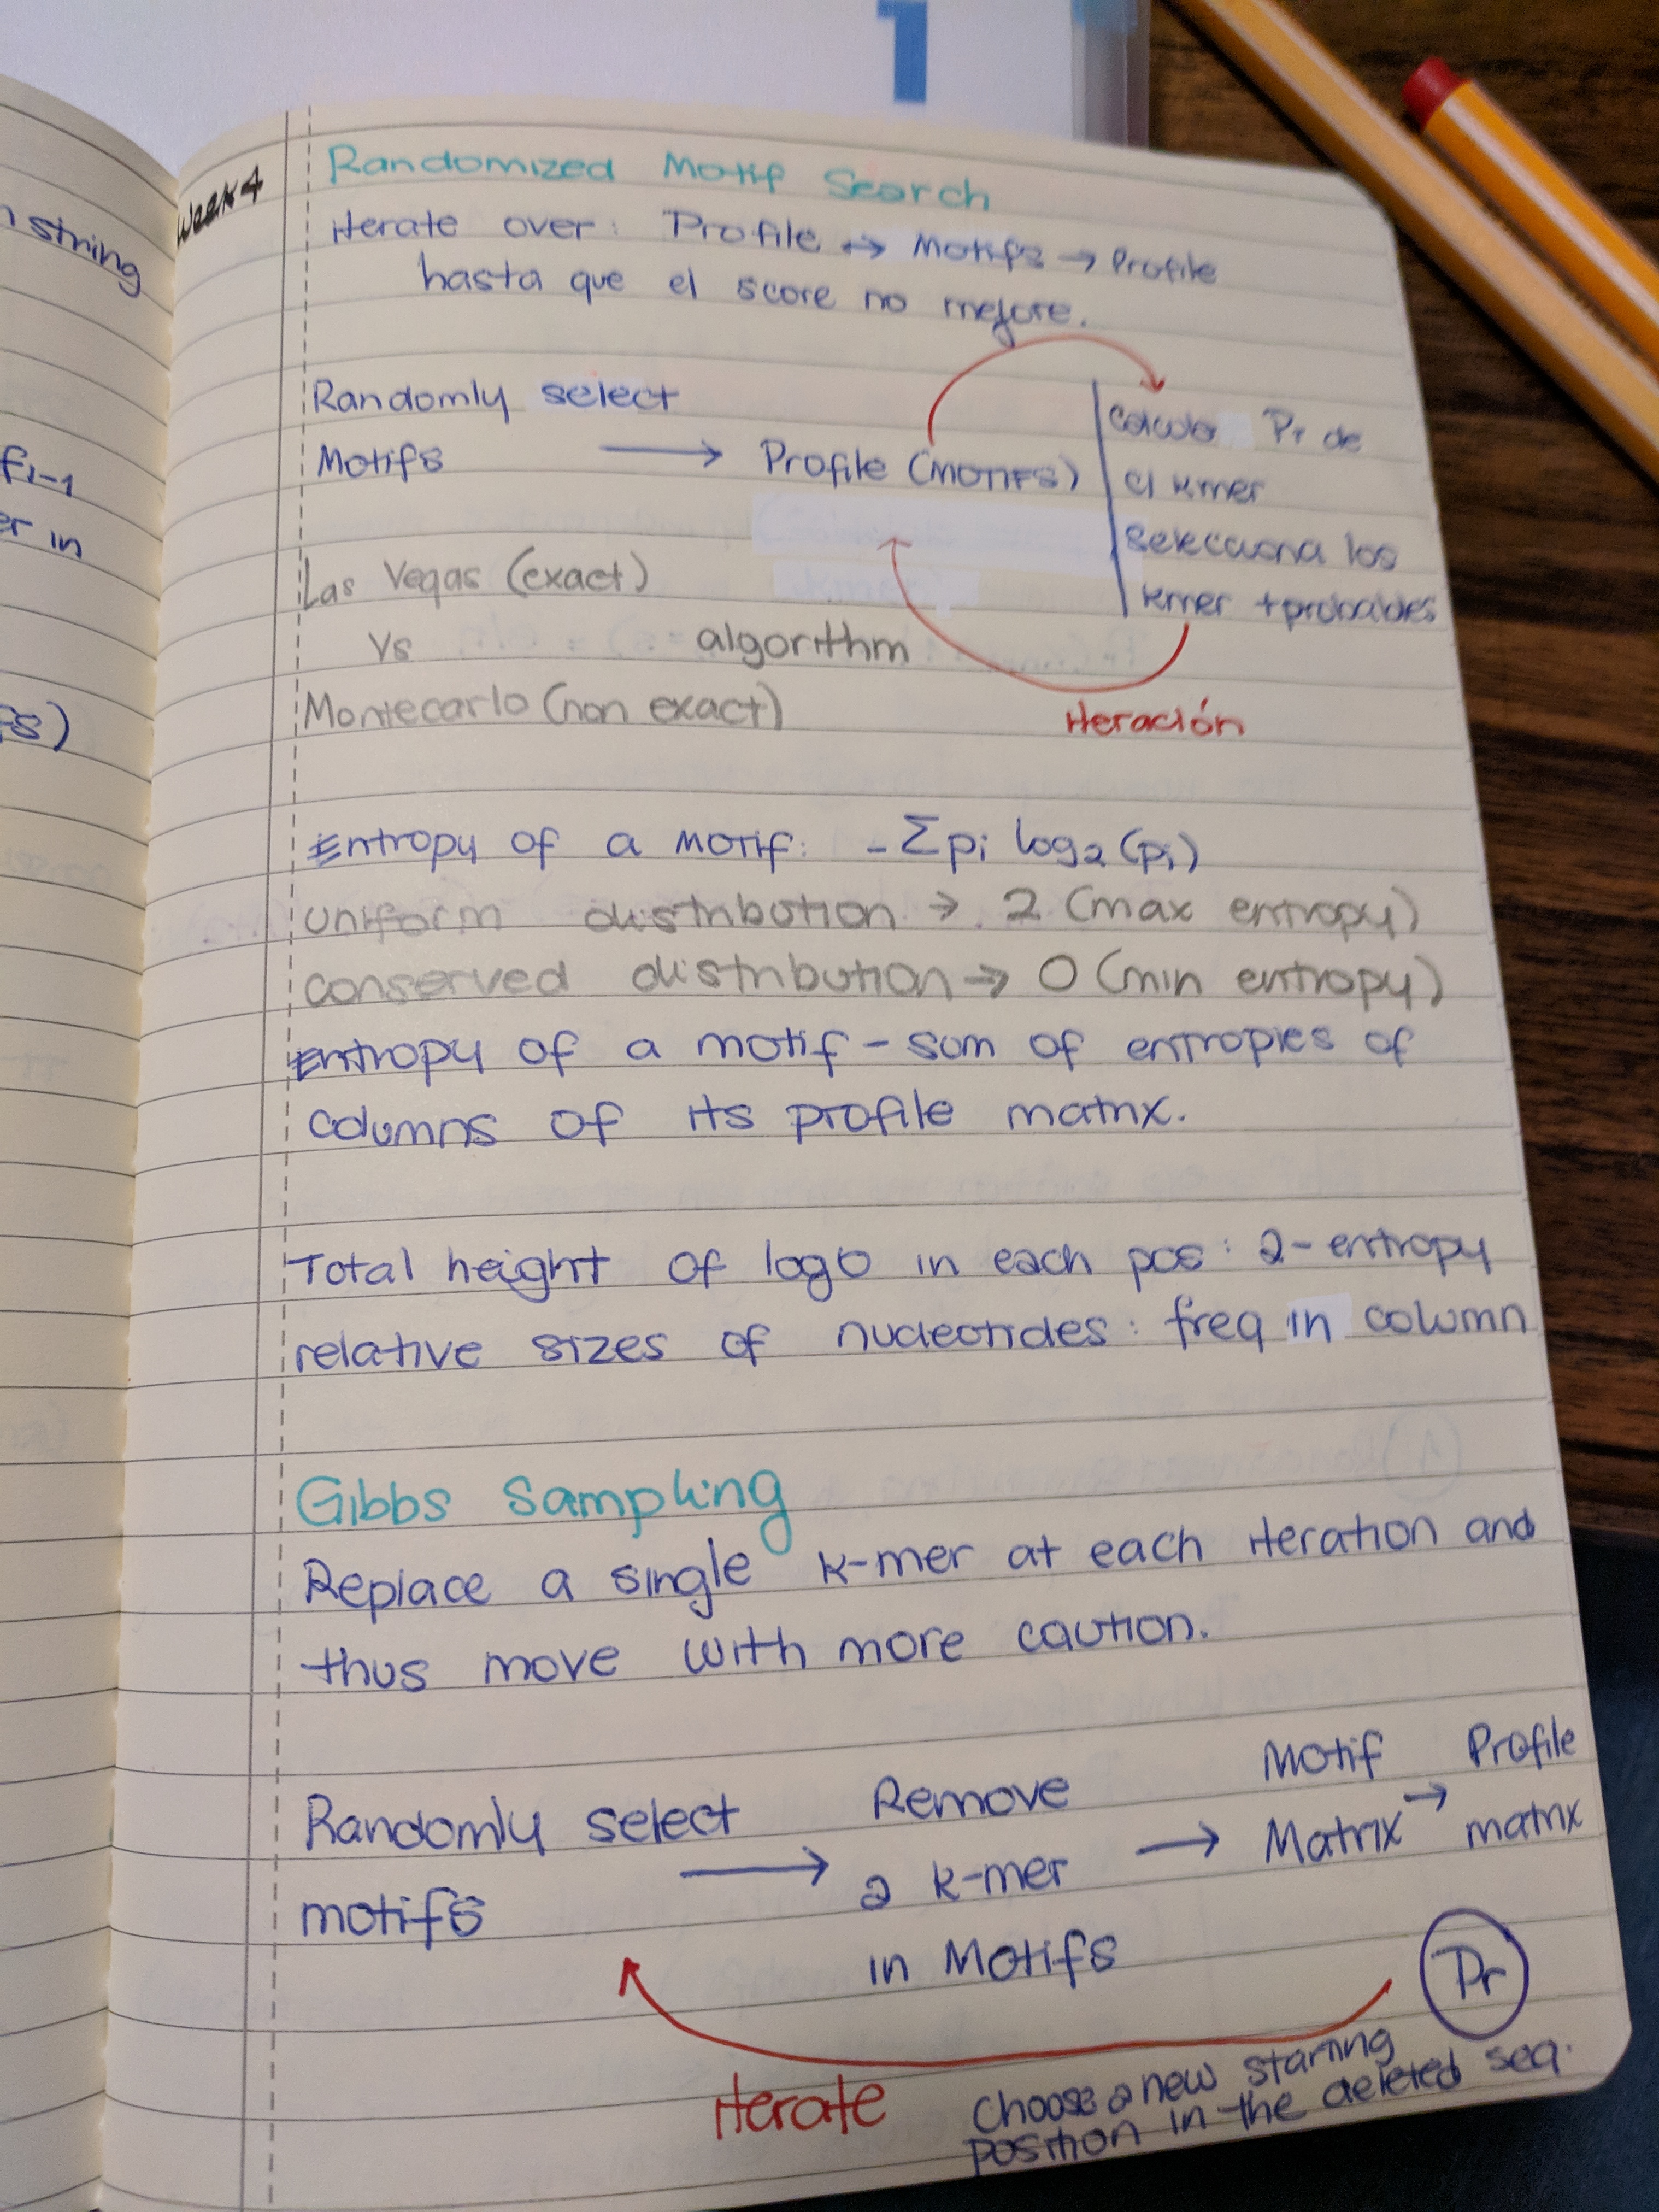 1
n string
f i-1
er in
fs)
Week 4
Randomized Motif Search
Iterate over: Profile ↔ Motifs → Profile
hasta que el score no mejore.
Randomly select
Motifs → Profile (MOTIFS)
Calculo Pr de
c/ kmer
selecciona los
kmer + probables
Iteración
Las Vegas (exact)
Vs algorithm
Montecarlo (non exact)
Entropy of a motif: - Σ pi log2 (pi)
Uniform distribution → 2 (max entropy)
conserved distribution → 0 (min entropy)
Entropy of a motif - sum of entropies of
columns of its profile matrix.
Total height of logo in each pos: 2-entropy
relative sizes of nucleotides: freq in column
Gibbs Sampling
Replace a single k-mer at each iteration and
thus move with more caution.
Randomly select
motifs
→ Remove
a k-mer
in Motifs
→ Motif
Matrix
→ Profile
matrix
Pr
iterate
Choose a new starting
position in the deleted seq.